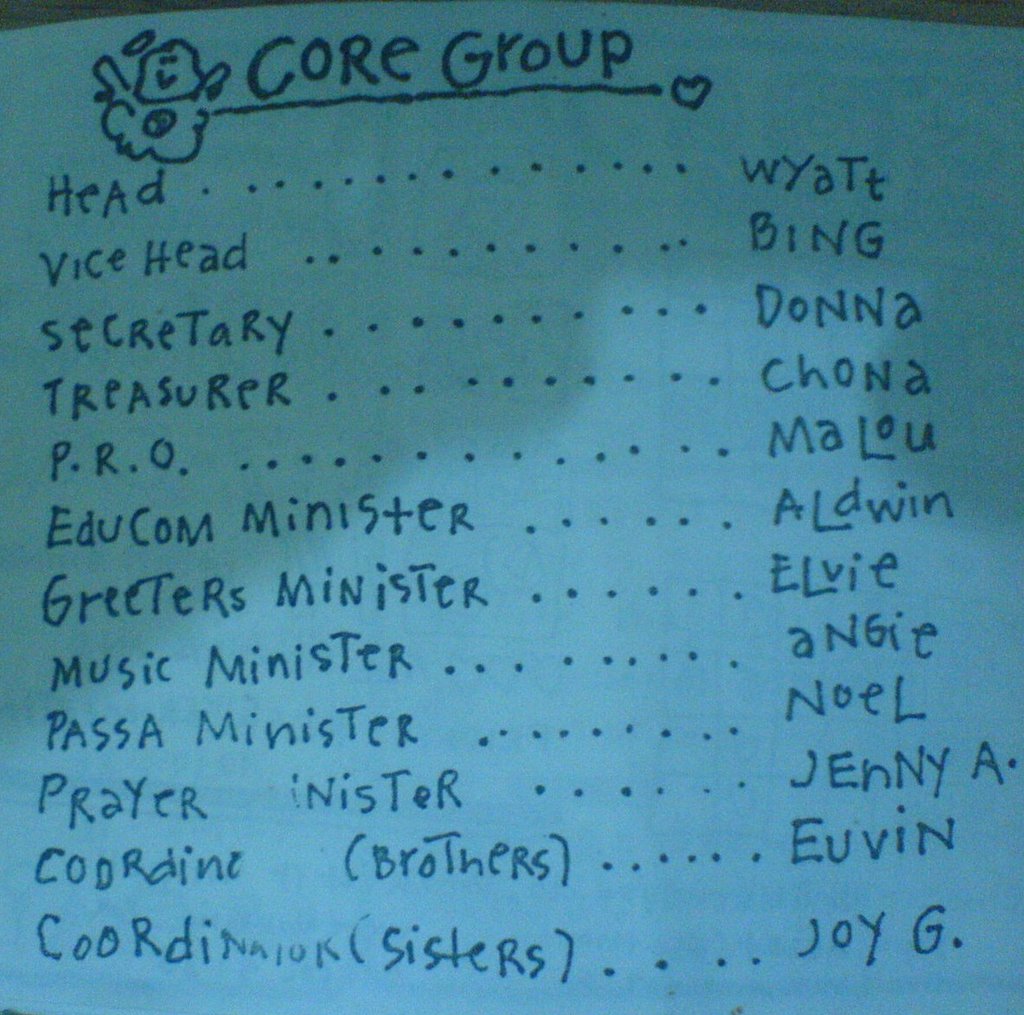 CORe GrouP
HeAd . . . . . . . . . . . . . . WYaTt
Vice Head . . . . . . . . . . . BING
SeCReTaRY . . . . . . . . . . . DONNa
TREASUReR . . . . . . . . . . . ChONa
P.R.O. . . . . . . . . . . . . . MaLou
EduCOM MiNiSteR . . . . . . ALdwin
GreeTeRs MiNiSTeR . . . . . . ELvie
MUSic MiniSTeR . . . . . . . . . aNGie
PASSA MiniSTeR . . . . . . . . . NoeL
PRaYeR iNisTeR . . . . . . JEnNY A.
COORdine (BroTheRS) . . . . . . EUViN
COORdiNaTOR (SisteRS) . . . . . JOY G.